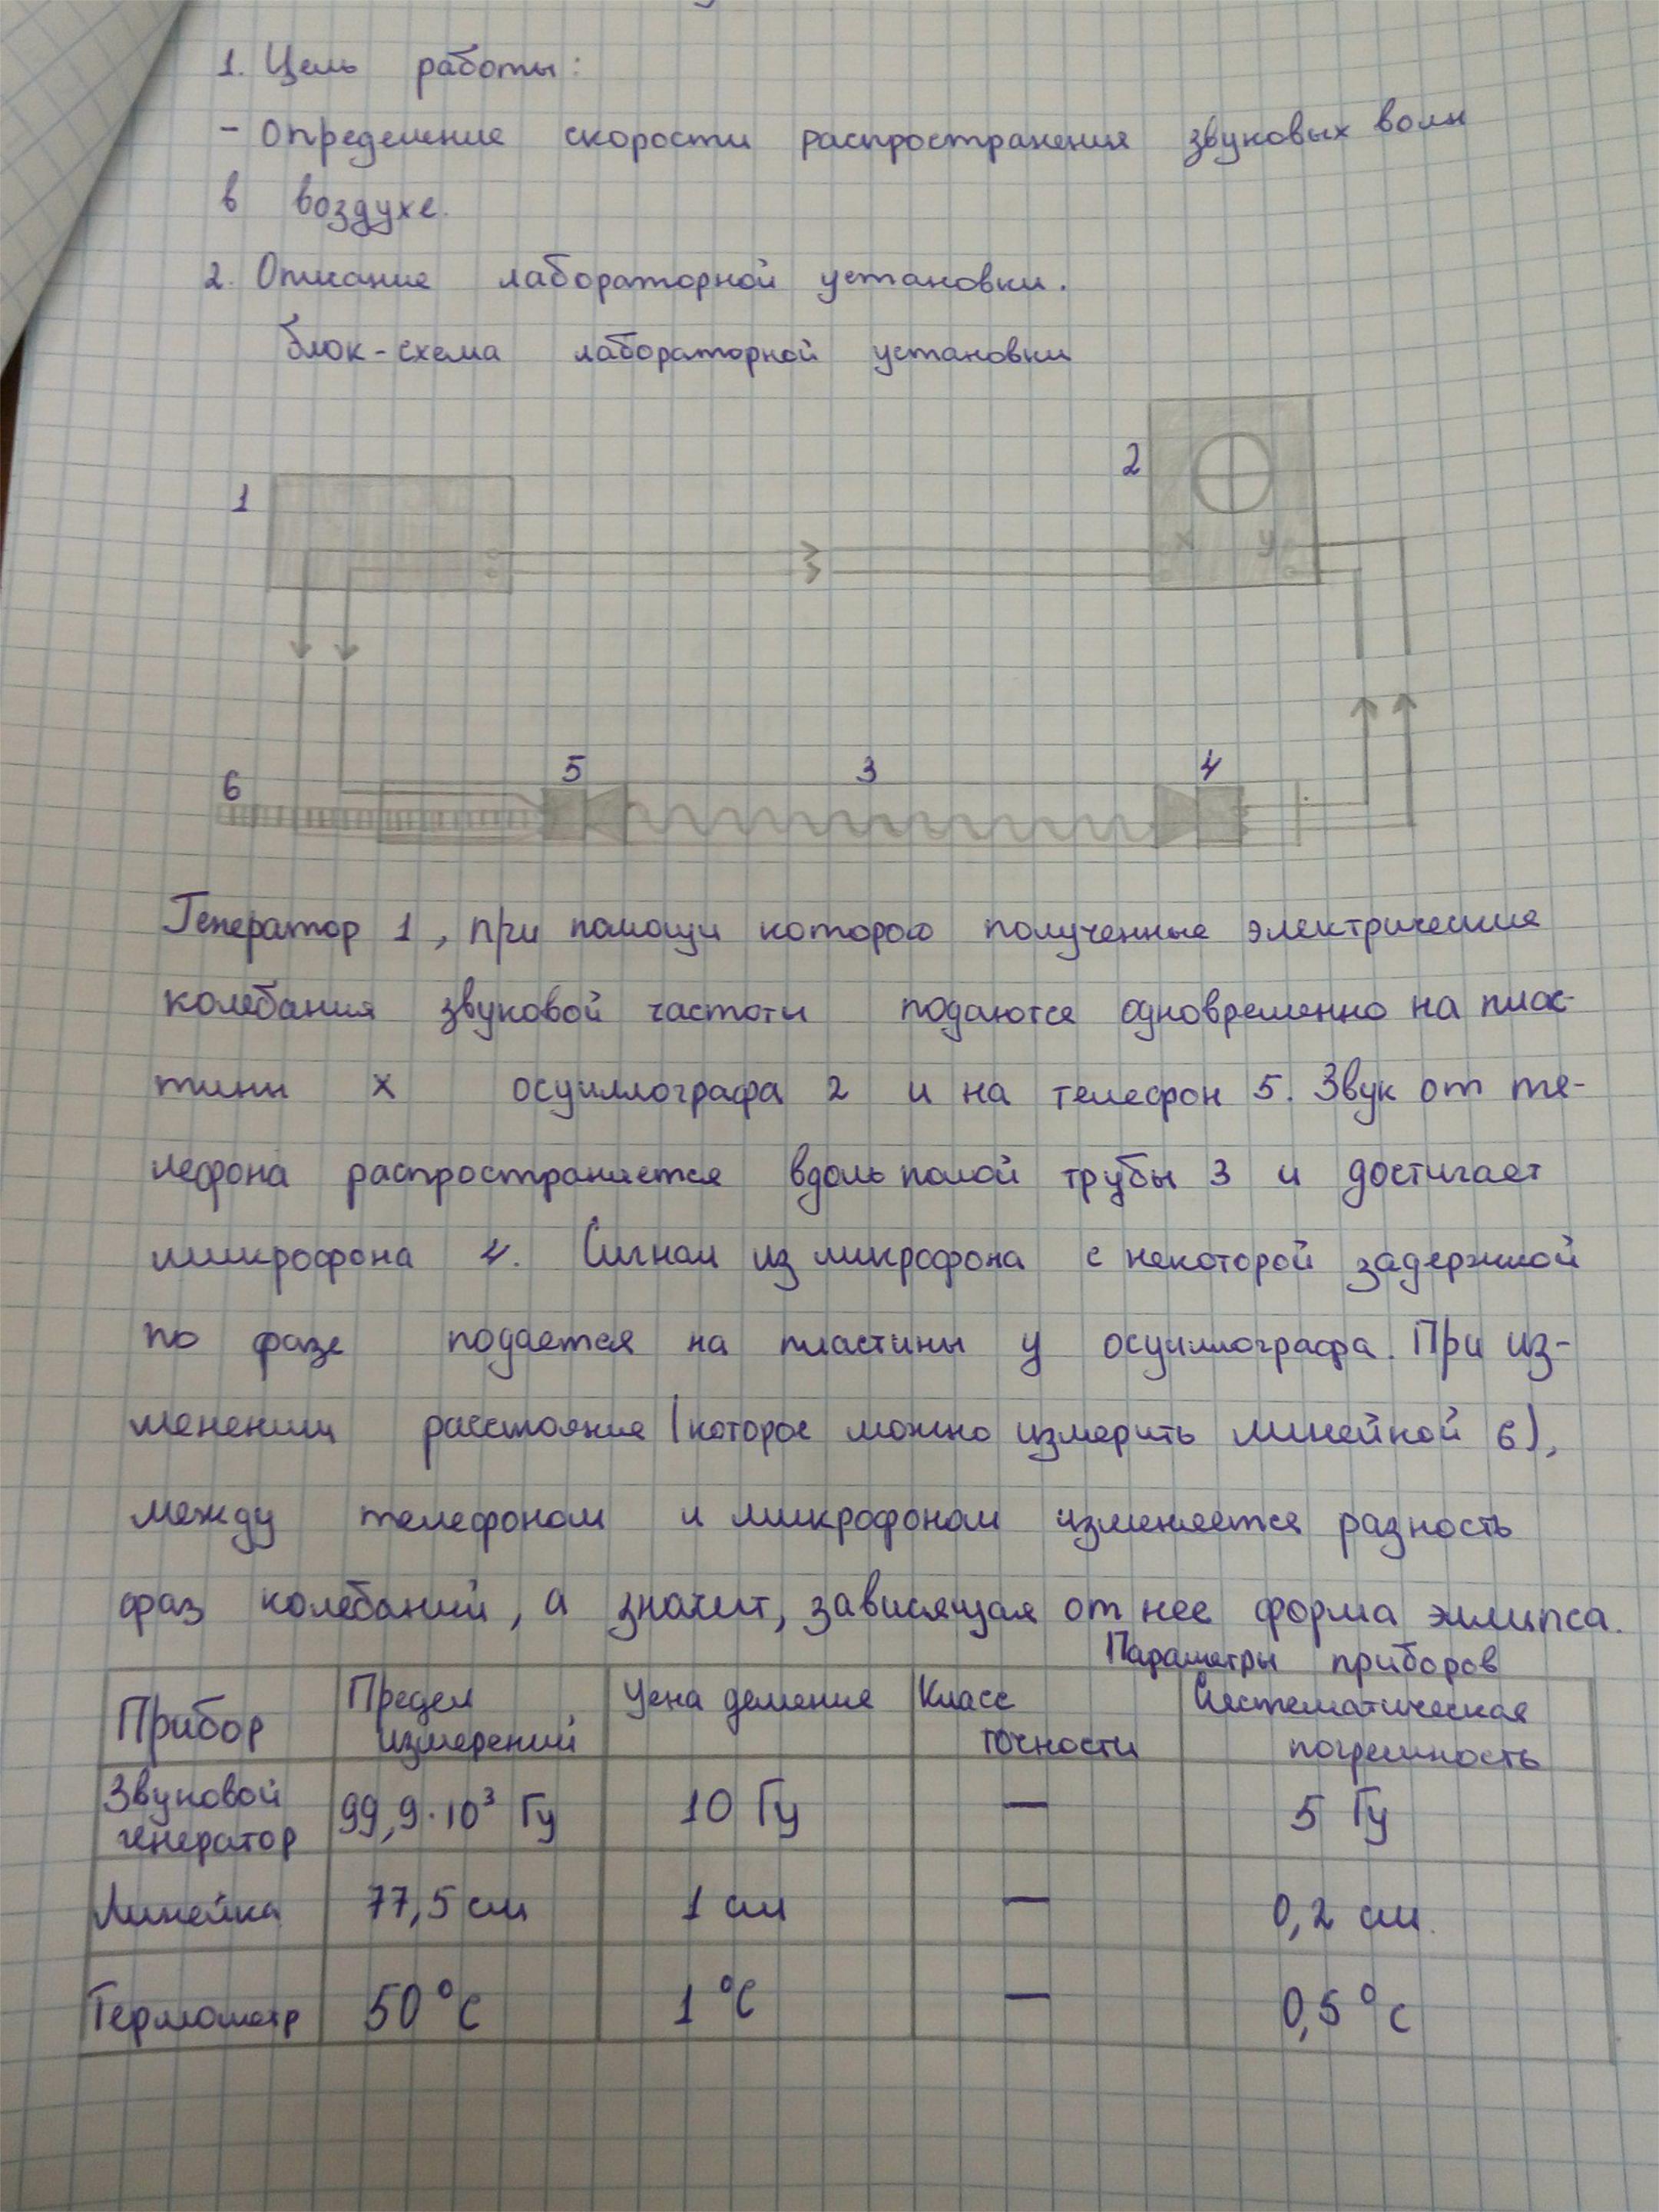 1. Цель работы:
- Определение скорости распространения звуковых волн
в воздухе.
2. Описание лабораторной установки.
блок-схема лабораторной установки
2
1
x y
5 3 4
6
Генератор 1, при помощи которого полученные электрические
колебания звуковой частоты подаются одновременно на плас-
тины x осциллографа 2 и на телефон 5. Звук от те-
лефона распространяется вдоль полой трубы 3 и достигает
микрофона 4. Сигнал из микрофона с некоторой задержкой
по фазе подается на пластины y осциллографа. При из-
менении расстояния (которое можно измерить линейкой 6),
между телефоном и микрофоном изменяется разность
фаз колебаний, а значит, зависящая от нее форма эллипса.
Параметры приборов
Прибор Предел измерений Цена деления Класс точности Систематическая погрешность
Звуковой генератор 99,9·10³ Гц 10 Гц — 5 Гц
Линейка 77,5 см 1 см — 0,2 см.
Термометр 50°C 1°C — 0,5°C